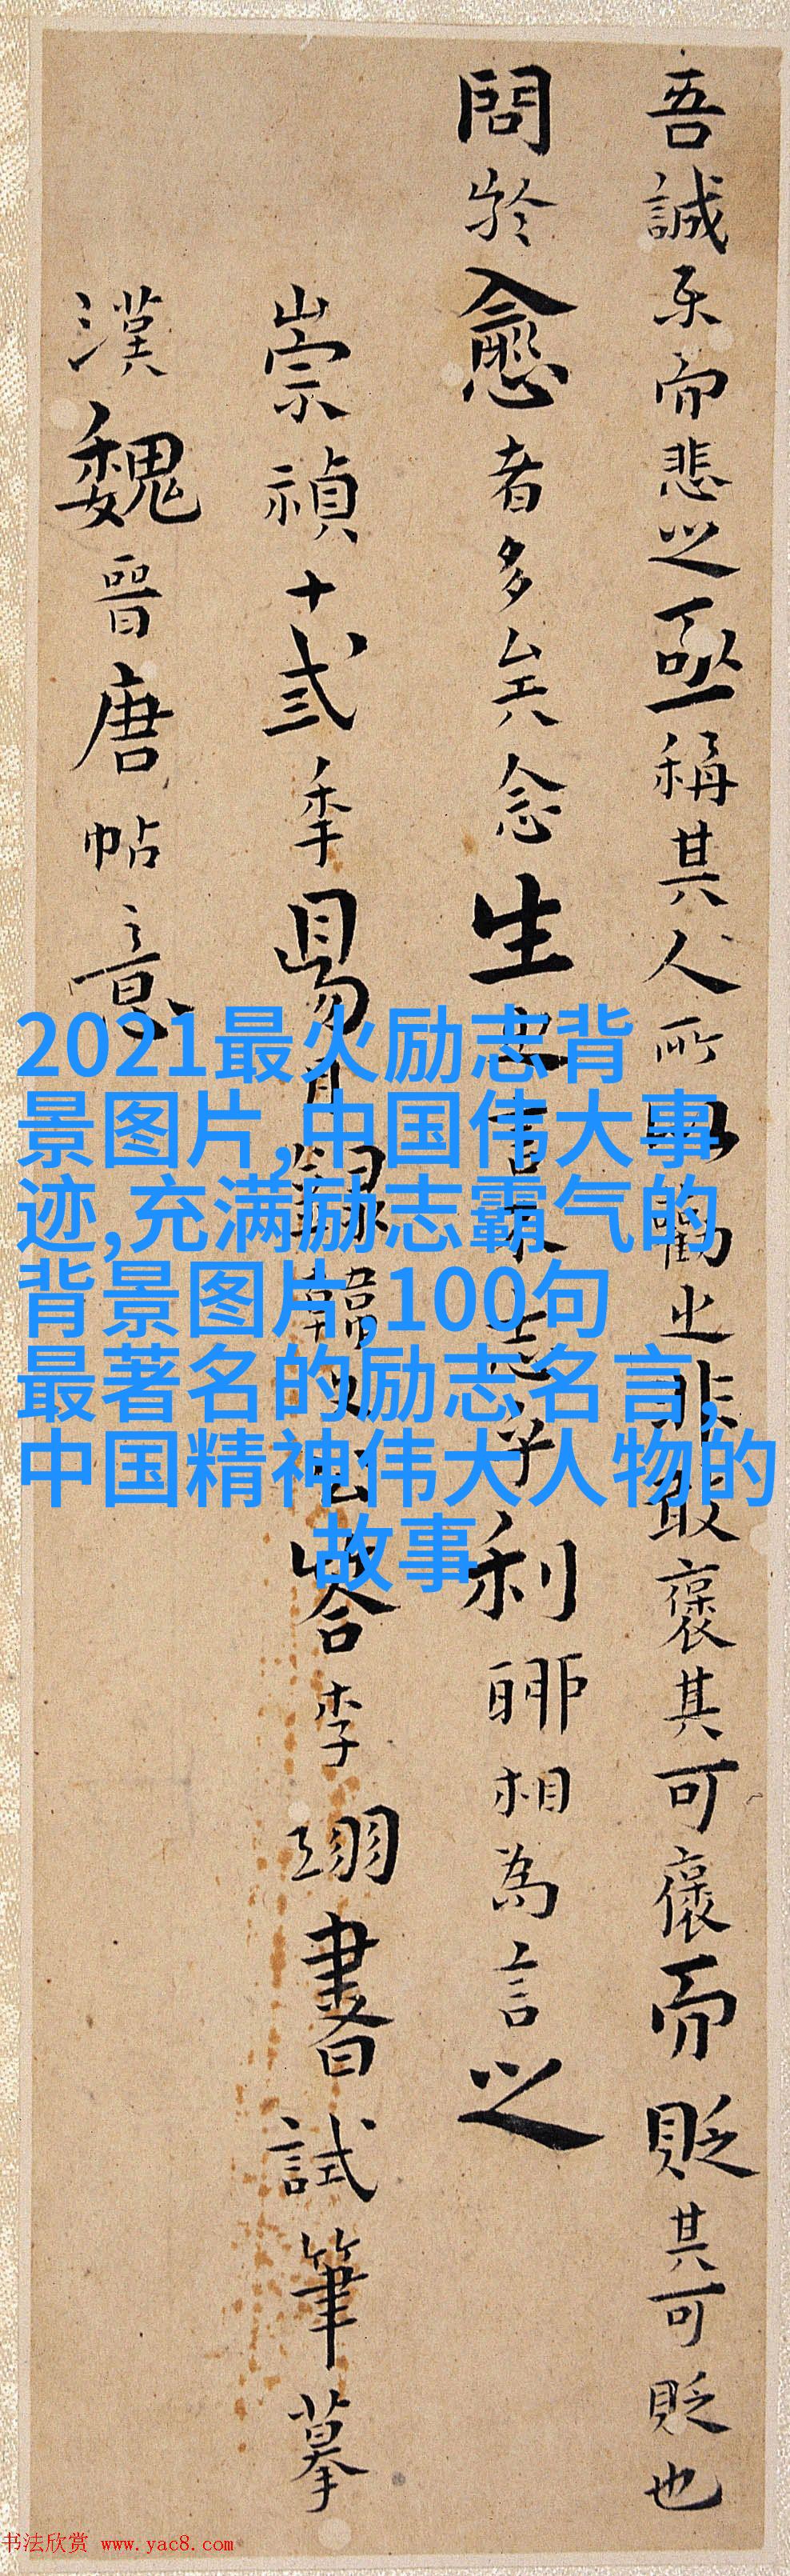 吾誠乐而悲之亟稱其人所以勸之非敢褒其可褒而貶其可貶也
問於愈者多矣念生之言不志乎利聊相為言之
崇禎十弎秊月錄韓文公答李翊書試筆摹
漢魏晉唐帖意
2021最火励志背
景图片,中国伟大事
迹,充满励志霸气的
背景图片,100句
最著名的励志名言,
中国精神伟大人物的
故事
书法欣赏 www.yac8.com